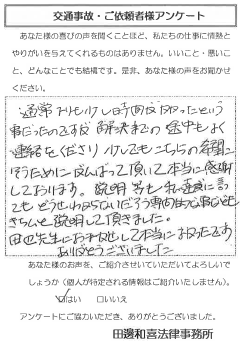 交通事故・ご依頼者様アンケート
あなた様の喜びの声を聞くことほど、私たちの仕事に情熱と
やりがいを与えてくれるものはありません。いいこと・悪いこ
と、どんなことでも結構です。是非、あなた様の声をお聞かせ
ください。
通常よりも少し時間がかかったという
事だったのですが 解決までの途中もよく
連絡をくださり 少しでもこちらの希望に
そうためにがんばって頂いて本当に感謝
しております。説明 等も私達素人に言
ってもどうせわからないだろう
きちんと説明して頂きました。
田辺先生にお願いして本当に良かったです
ありがとうございました
あなた様のお声を、ご紹介させていただいてよろしいで
しょうか（個人が特定される情報はご紹介いたしません）。
☑はい　□いいえ
アンケートにご協力いただき、ありがとうございました。
田邊和喜法律事務所